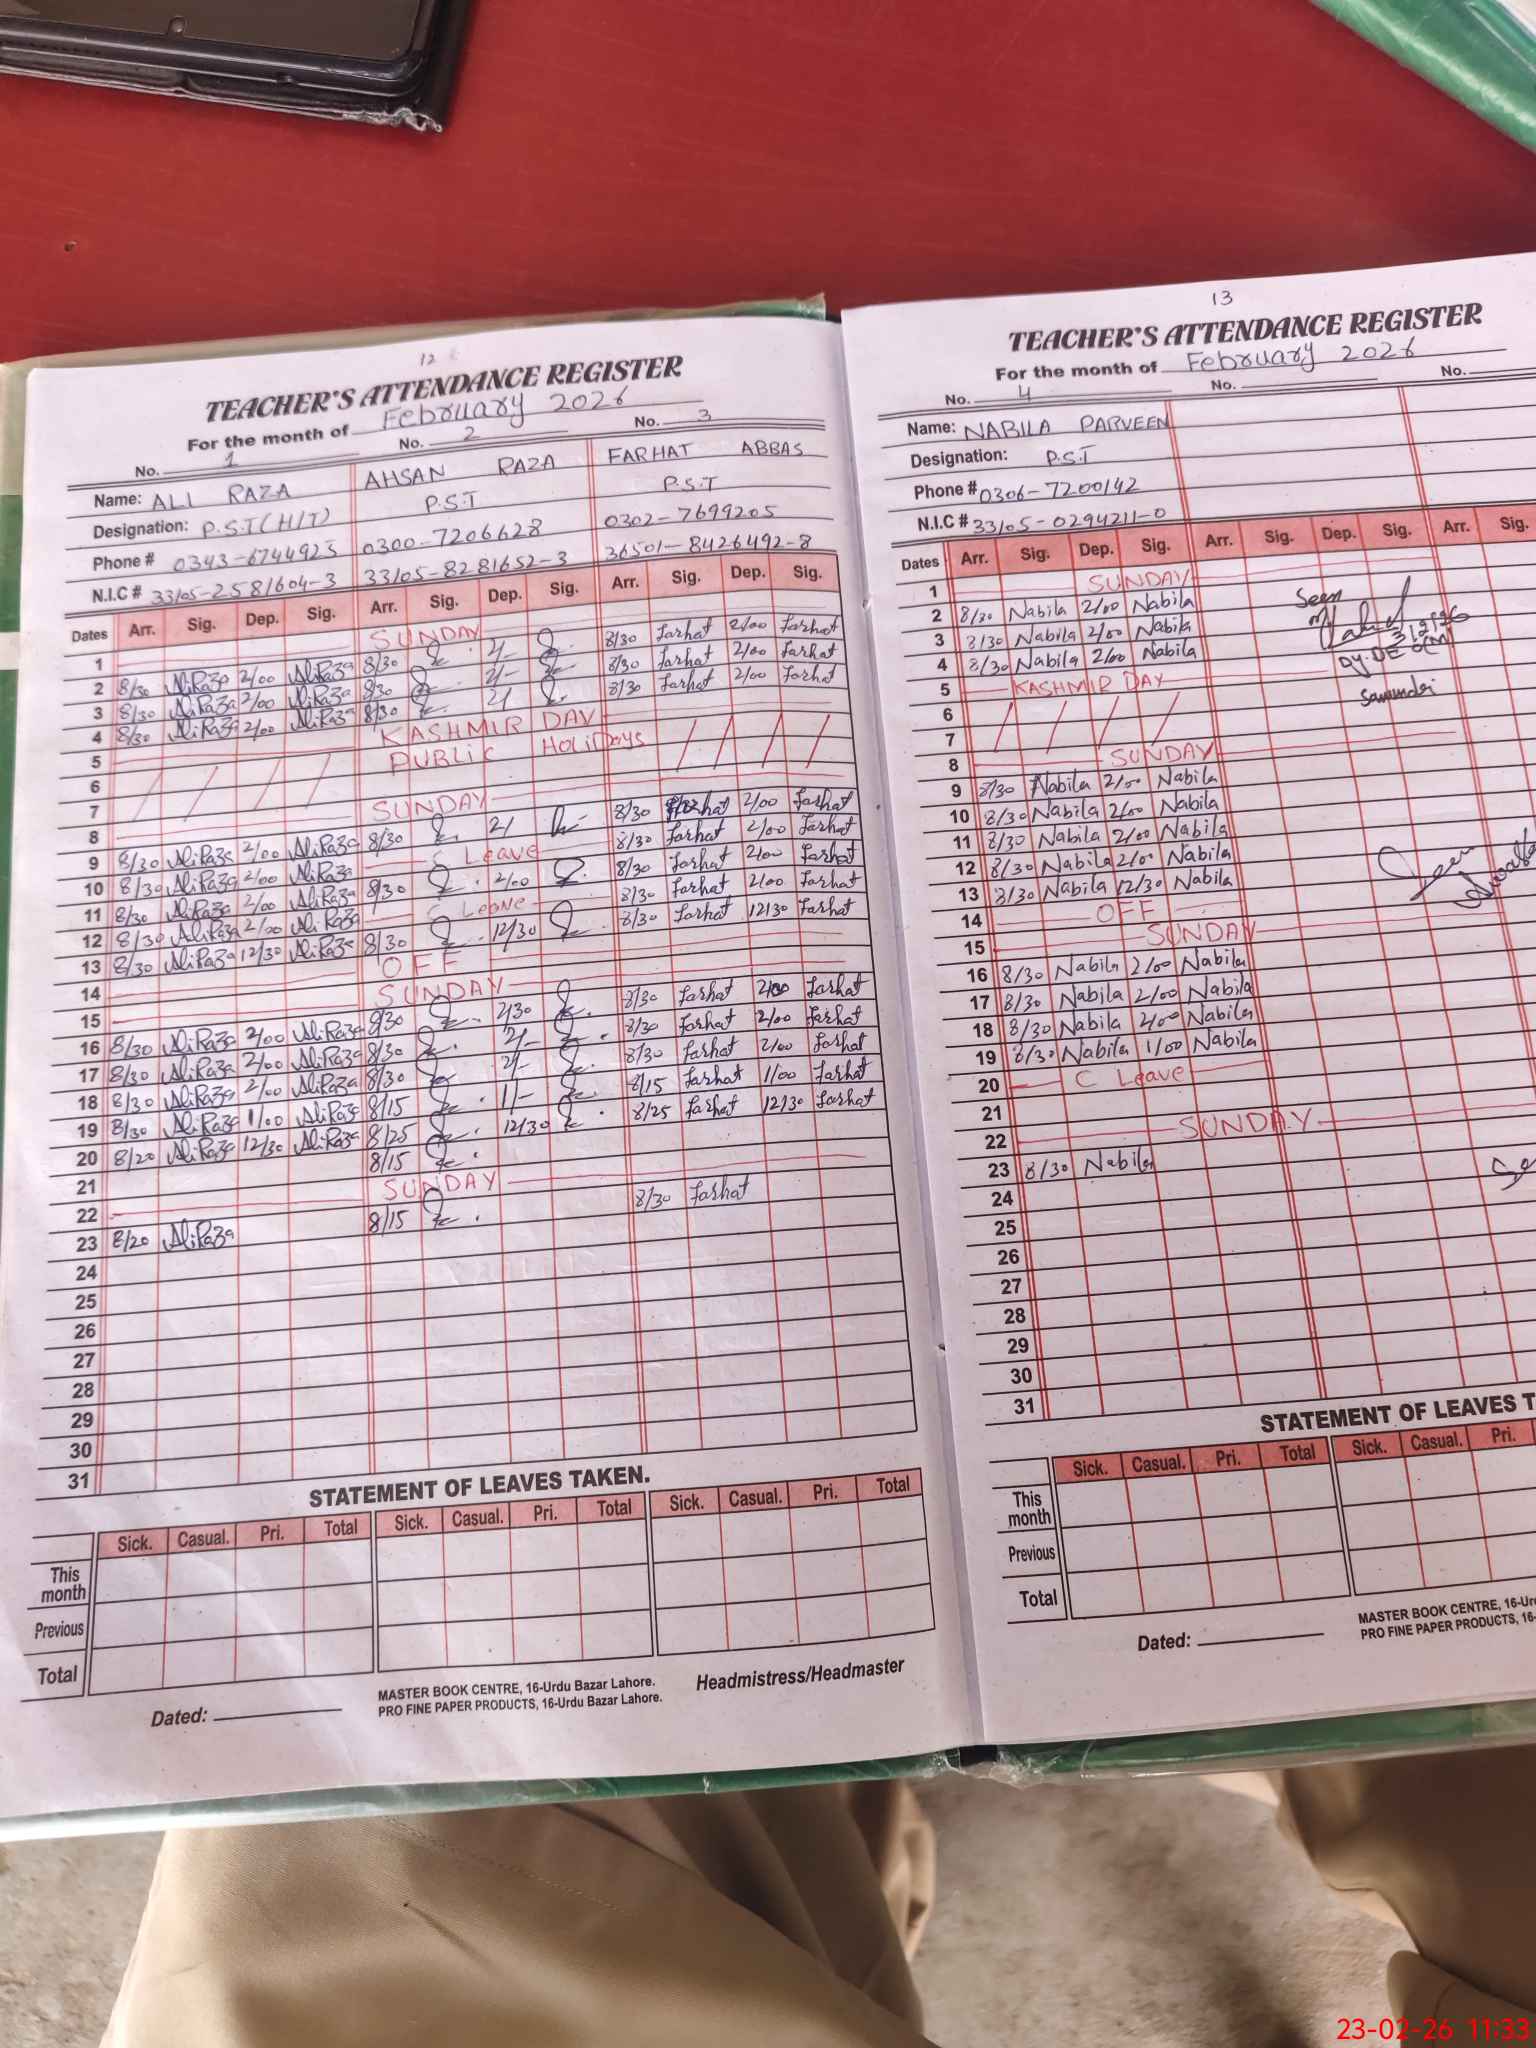 12
TEACHER'S ATTENDANCE REGISTER
For the month of February 2026
No. 1 No. 2 No. 3
Name: ALI RAZA AHSAN RAZA FARHAT ABBAS
Designation: P.S.T(H/T) P.S.T P.S.T
Phone # 0343-6744925 0300-7206628 0302-7699205
N.I.C # 33105-2581604-3 33105-8281652-3 36501-8426492-8
Dates Arr. Sig. Dep. Sig. Arr. Sig. Dep. Sig. Arr. Sig. Dep. Sig.
1 SUNDAY
2 8/30 AliRaza 2/00 AliRaza 8/30 2/- 8/30 Farhat 2/00 Farhat
3 8/30 AliRaza 2/00 AliRaza 8/30 2/- 8/30 Farhat 2/00 Farhat
4 8/30 AliRaza 2/00 AliRaza 8/30 2/ 8/30 Farhat 2/00 Farhat
5 KASHMIR DAY
6 PUBLIC HOLIDAYS
7
8 SUNDAY
9 8/30 AliRaza 2/00 AliRaza 8/30 2/ 8/30 Farhat 2/00 Farhat
10 8/30 AliRaza 2/00 AliRaza C Leave 8/30 Farhat 2/00 Farhat
11 8/30 AliRaza 2/00 AliRaza 8/30 2/00 8/30 Farhat 2/00 Farhat
12 8/30 AliRaza 2/00 AliRaza C Leave 8/30 Farhat 2/00 Farhat
13 8/30 AliRaza 12/30 AliRaza 8/30 12/30 8/30 Farhat 12130 Farhat
14 OFF
15 SUNDAY
16 8/30 AliRaza 2/00 AliRaza 8/30 2/30 8/30 Farhat 2/00 Farhat
17 8/30 AliRaza 2/00 AliRaza 8/30 2/- 8/30 Farhat 2/00 Farhat
18 8/30 AliRaza 2/00 AliRaza 8/30 2/- 8/30 Farhat 2/00 Farhat
19 8/30 AliRaza 1/00 AliRaza 8/15 1/- 8/15 Farhat 1/00 Farhat
20 8/20 AliRaza 12/30 AliRaza 8/25 12/30 8/25 Farhat 12130 Farhat
21 8/15
22 SUNDAY
23 8/20 AliRaza 8/15 8/30 Farhat
24
25
26
27
28
29
30
31
STATEMENT OF LEAVES TAKEN.
Sick. Casual. Pri. Total Sick. Casual. Pri. Total Sick. Casual. Pri. Total
This month
Previous
Total
Dated:
MASTER BOOK CENTRE, 16-Urdu Bazar Lahore.
PRO FINE PAPER PRODUCTS, 16-Urdu Bazar Lahore.
Headmistress/Headmaster
13
TEACHER'S ATTENDANCE REGISTER
For the month of February 2026
No. 4 No. No.
Name: NABILA PARVEEN
Designation: P.S.T
Phone # 0306-7200142
N.I.C # 33105-0294211-0
Dates Arr. Sig. Dep. Sig. Arr. Sig. Dep. Sig. Arr. Sig.
1 SUNDAY
2 8/30 Nabila 2/00 Nabila
3 8/30 Nabila 2/00 Nabila
4 8/30 Nabila 2/00 Nabila
5 KASHMIR DAY
6
7
8 SUNDAY
9 8/30 Nabila 2/00 Nabila
10 8/30 Nabila 2/00 Nabila
11 8/30 Nabila 2/00 Nabila
12 8/30 Nabila 2/00 Nabila
13 8/30 Nabila 12/30 Nabila
14 OFF
15 SUNDAY
16 8/30 Nabila 2/00 Nabila
17 8/30 Nabila 2/00 Nabila
18 8/30 Nabila 2/00 Nabila
19 8/30 Nabila 1/00 Nabila
20 C Leave
21
22 SUNDAY
23 8/30 Nabila
24
25
26
27
28
29
30
31
Seen
Dy. DE
STATEMENT OF LEAVES T
Sick. Casual. Pri. Total Sick. Casual. Pri.
This month
Previous
Total
Dated:
MASTER BOOK CENTRE, 16-Ur
PRO FINE PAPER PRODUCTS, 16-
23-02-26 11:33